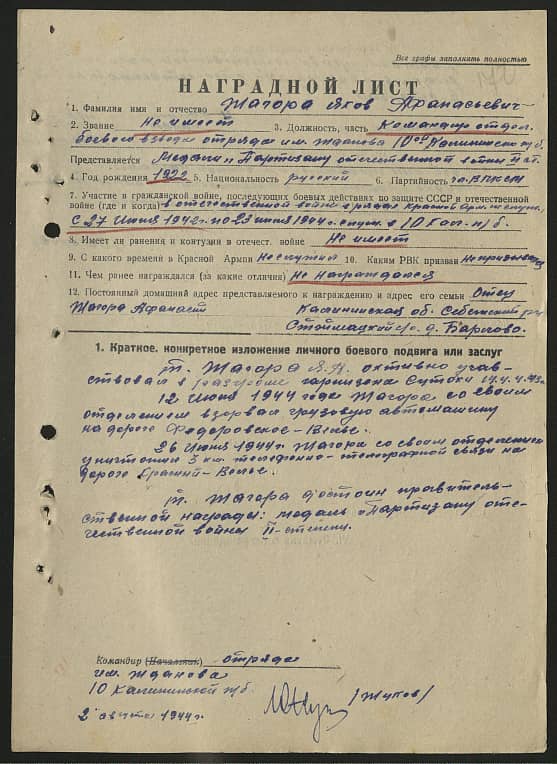 Все графы заполнять полностью
НАГРАДНОЙ ЛИСТ
1. Фамилия имя и отчество Жагора Яков Афанасьевич
2. Звание не имеет 3. Должность, часть Командир отдел.
боевого взвода отряда им. Жданова 10ой Калининской п/б.
Представляется к Медали "Партизану отечественной войны II ст.
4. Год рождения 1922 5. Национальность русский 6. Партийность чл. ВЛКСМ
7. Участие в гражданской войне, последующих боевых действиях по защите СССР и отечественной
войне (где и когда) в отечественной войне в рядах Красной Арм. не служ.,
с 27 июня 1942 г. по 23 июля 1944 г. в 10 Кал. п/б.
8. Имеет ли ранения и контузии в отечест. войне Не имеет
9. С какого времени в Красной Армии Не служил 10. Каким РВК призван Не призывался
11. Чем ранее награждался (за какие отличия) Не награждался
12. Постоянный домашний адрес представляемого к награждению и адрес его семьи Отец
Жагора Афанасий Калининская об. Себежский р-н
с/с. д.
1. Краткое, конкретное изложение личного боевого подвига или заслуг
т. Жагора Я.А. активно учав-
ствовал в разгроме гарнизона Сутоки
12 июня 1944 года Жагора со своим
отделением взорвал грузовую автомашину
на дороге Федоровское-Велье.
26 июня 1944 г. Жагора со своим отделением
уничтожил 3 км. телефонно-телеграфной связи на
дороге Красный-Велье.
т. Жагора достоин правитель-
ственной награды: медаль "Партизану оте-
чественной войны II-степени.
Командир (Начальник) отряда
им. Жданова
10 Калининской п/б.
/Жуков/
2 августа 1944 г.